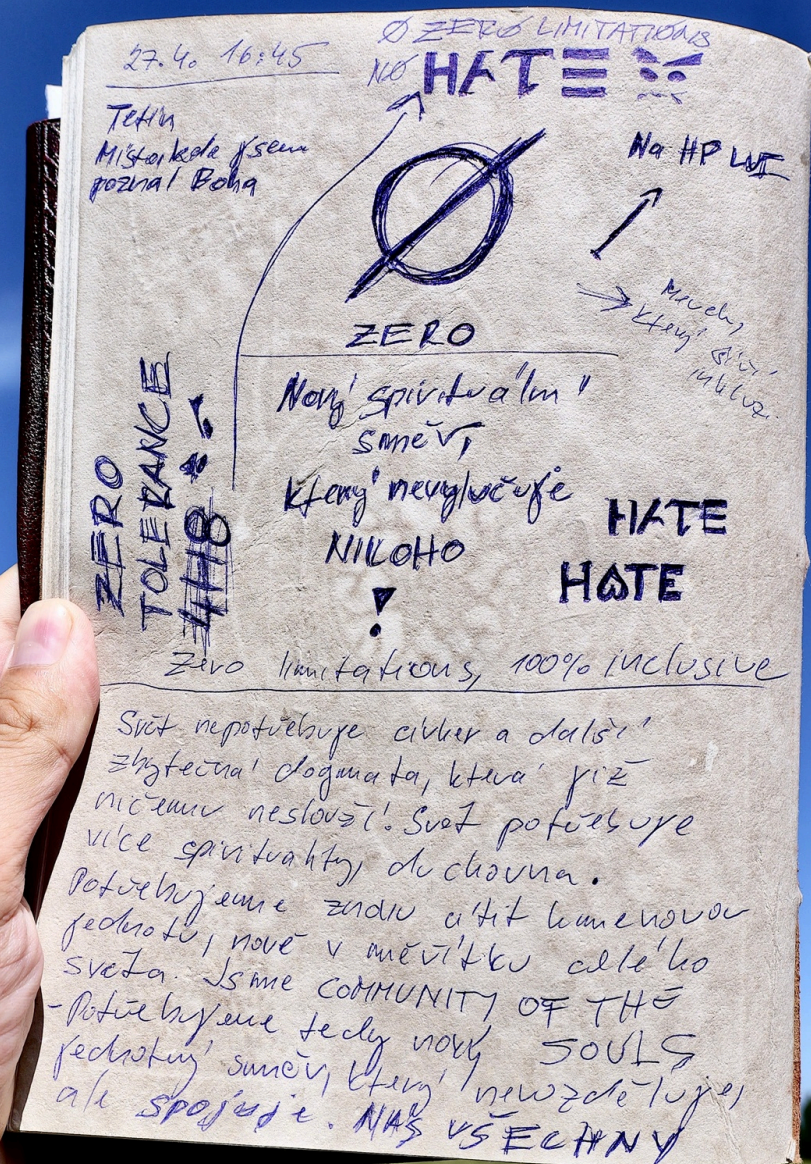 Ø ZERO LIMITATIONS
27.4. 16:45
NO HATE
Tetín
Místo kde jsem
poznal Boha
Na HP LVE
ZERO
který šíří
inkluzi
Nový spirituální
směr,
který nevylučuje
NIKOHO
!
ZERO
TOLERANCE
4H8
HATE
HATE
Zero limitations, 100% inclusive
Svět nepotřebuje církev a další
zbytečná dogmata, která již
ničemu neslouží. Svět potřebuje
více spirituality, duchovna.
Potřebujeme znovu cítit kmenovou
jednotu, nově v měřítku celého
světa. Jsme COMMUNITY OF THE
SOULS
- Potřebujeme tedy nový
jednotný směr, který nevzděluje,
ale spojuje. NÁS VŠECHNY